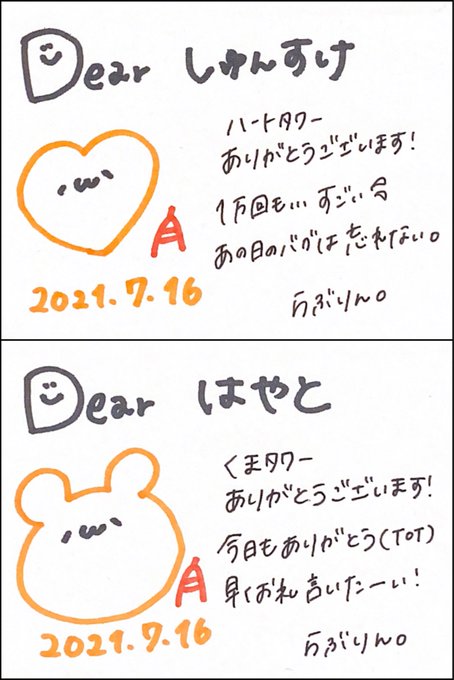 Dear しゅんすけ
ハートタワー
ありがとうございます!
1万回も… すごい
あの日のバグは忘れない。
2021.7.16
らぶりん。
Dear はやと
くまタワー
ありがとうございます!
今日もありがとう(ToT)
早くお礼言いたーい!
2021.7.16
らぶりん。